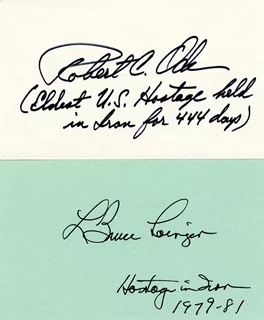 Robert C. Ode
(Eldest U.S. Hostage held
in Iran for 444 days)
L Bruce Laingen
Hostage in Iran
1979-81